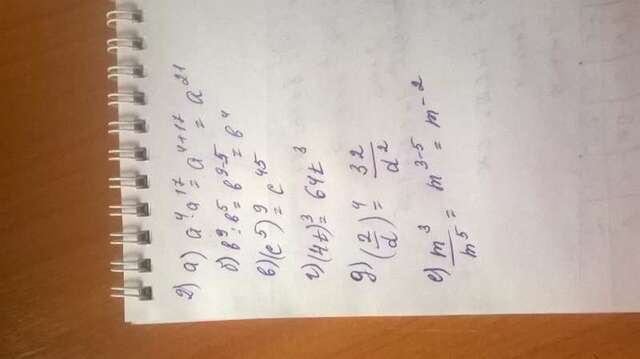 2) а) a⁴·a¹⁷=a⁴⁺¹⁷=a²¹
б) в⁹:в⁵=в⁹⁻⁵=в⁴
в)(c⁵)⁹=c⁴⁵
г)(4t)³=64t³
д)(2/d)⁴=32/d²
е) m³/m⁵= m³⁻⁵=m⁻²